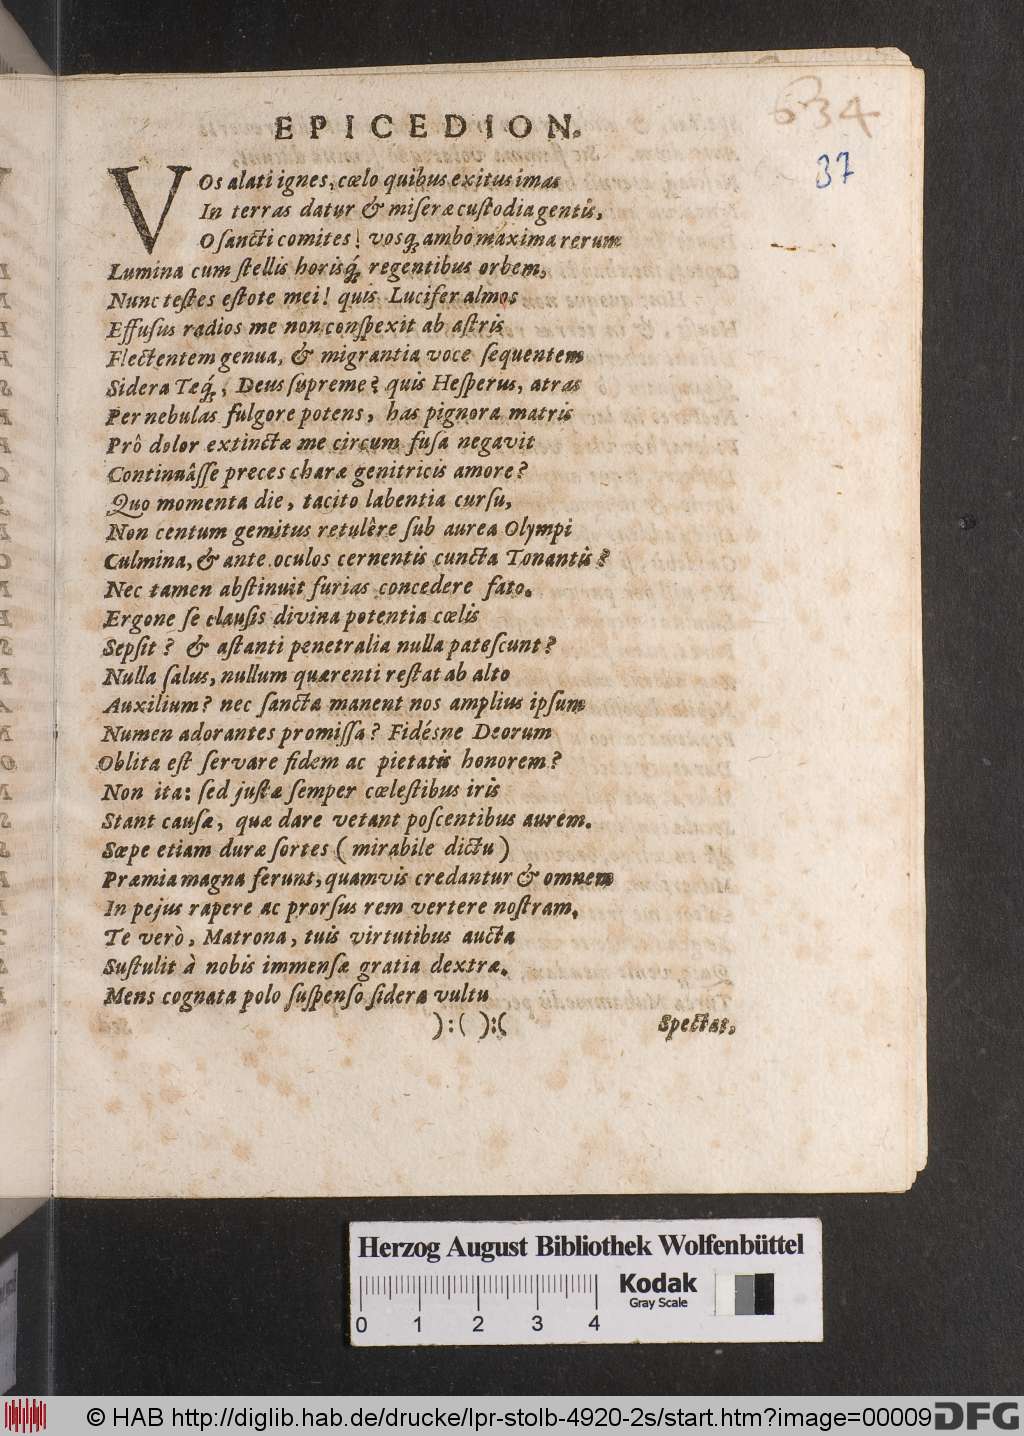 634
37
EPICEDION.
VOs alati ignes, cœlo quibus exitus imas
In terras datur & miseræ custodia gentis,
O sancti comites! vosq́ ambo maxima rerum
Lumina cum stellis horisq́ regentibus orbem,
Nunc testes estote mei! quis Lucifer almos
Effusus radios me non conspexit ab astris
Flectentem genua, & migrantia voce sequentem
Sidera Teq́, Deus supreme? quis Hesperus, atras
Per nebulas fulgore potens, has pignora matris
Prô dolor extinctæ me circum fusa negavit
Continuâsse preces charæ genitricis amore?
Quo momenta die, tacito labentia cursu,
Non centum gemitus retulêre sub aurea Olympi
Culmina, & ante oculos cernentis cuncta Tonantis?
Nec tamen abstinuit furias concedere fato.
Ergone se clausis divina potentia cœlis
Sepsit? & astanti penetralia nulla patescunt?
Nulla salus, nullum quærenti restat ab alto
Auxilium? nec sancta manent nos amplius ipsum
Numen adorantes promissa? Fidésne Deorum
Oblita est servare fidem ac pietatis honorem?
Non ita: sed justæ semper cœlestibus iris
Stant causæ, quæ dare vetant poscentibus aurem.
Sæpe etiam duræ sortes (mirabile dictu)
Præmia magna ferunt, quamvis credantur & omnem
In pejus rapere ac prorsus rem vertere nostram.
Te verò, Matrona, tuis virtutibus aucta
Sustulit à nobis immensæ gratia dextræ.
Mens cognata polo suspenso sidera vultu
):( ):( Spectat,
Herzog August Bibliothek Wolfenbüttel
0 1 2 3 4
Kodak
Gray Scale
© HAB http://diglib.hab.de/drucke/lpr-stolb-4920-2s/start.htm?image=00009
DFG